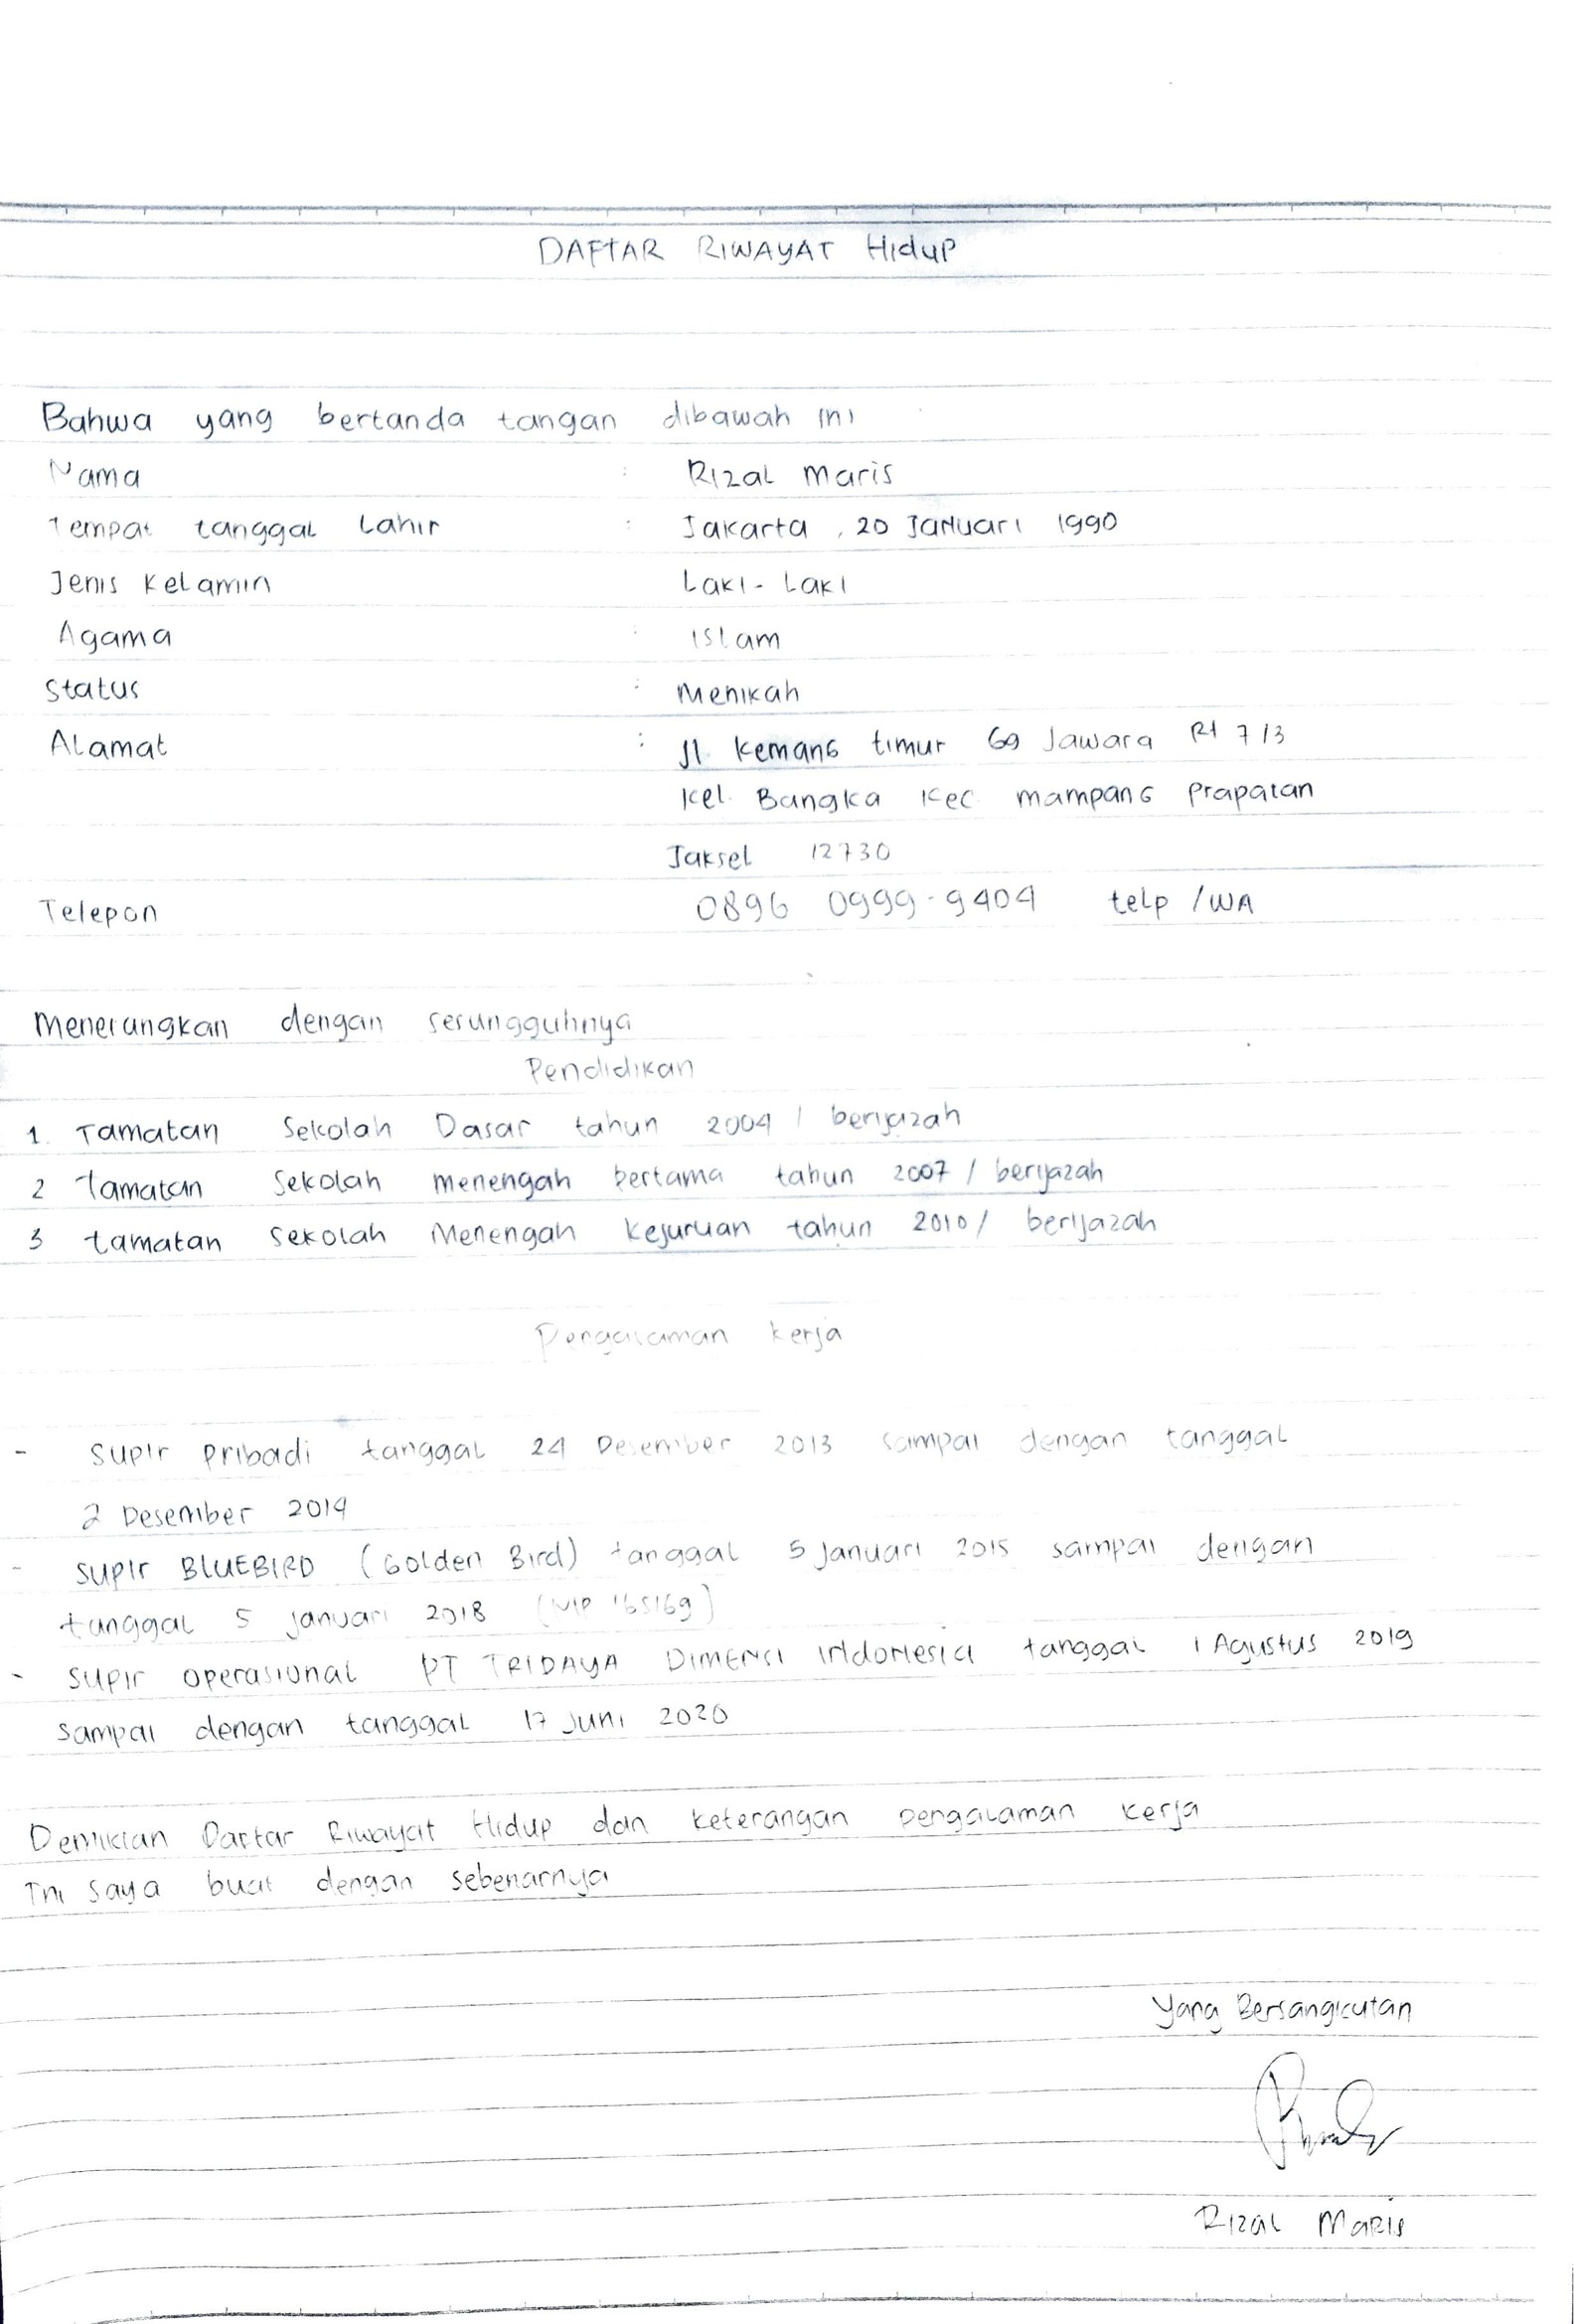 DAFTAR RIWAYAT Hidup
Bahwa yang bertanda tangan dibawah ini
Nama : Rizal Maris
Tempat tanggal Lahir : Jakarta, 20 Januari 1990
Jenis Kelamin Laki-Laki
Agama : Islam
Status : Menikah
Alamat : Jl. Kemang timur Gg Jawara Rt 7/3
Kel. Bangka Kec. mampang Prapatan
Jaksel 12730
Telepon 0896 0999-9404 telp /WA
Menerangkan dengan sesungguhnya
Pendidikan
1. Tamatan Sekolah Dasar tahun 2004 / berijazah
2 Tamatan Sekolah menengah pertama tahun 2007 / berijazah
3 tamatan Sekolah Menengah Kejuruan tahun 2010 / berijazah
Pengalaman kerja
- Supir Pribadi tanggal 24 Desember 2013 sampai dengan tanggal
2 Desember 2014
- Supir BLUEBIRD (Golden Bird) tanggal 5 Januari 2015 sampai dengan
tanggal 5 januari 2018 (NIP 165169)
- Supir operasional PT TRIDAYA DIMENSI Indonesia tanggal 1 Agustus 2019
sampai dengan tanggal 17 Juni 2020
Demikian Daftar Riwayat Hidup dan keterangan pengalaman kerja
Ini saya buat dengan sebenarnya
Yang Bersangkutan
Rizal Maris